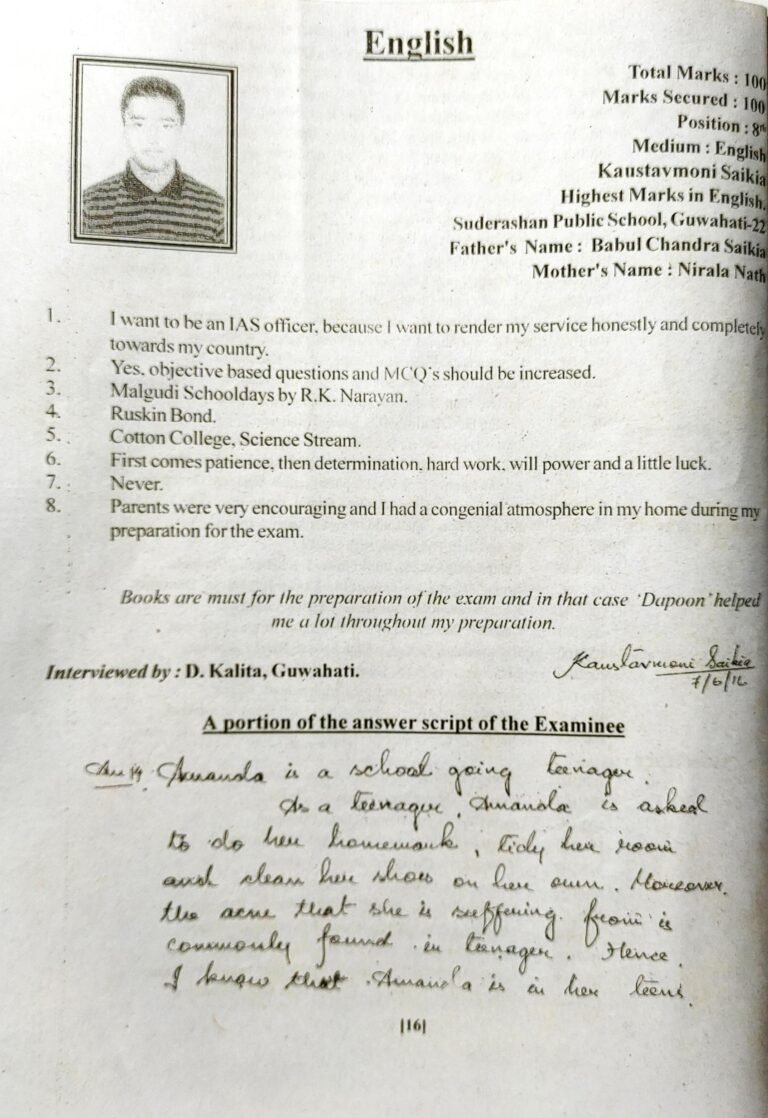 English
Total Marks : 100
Marks Secured : 100
Position : 8th
Medium : English
Kaustavmoni Saikia
Highest Marks in English.
Suderashan Public School, Guwahati-22
Father's Name : Babul Chandra Saikia
Mother's Name : Nirala Nath
1. I want to be an IAS officer, because I want to render my service honestly and completely
towards my country.
2. Yes, objective based questions and MCQ's should be increased.
3. Malgudi Schooldays by R.K. Narayan.
4. Ruskin Bond.
5. Cotton College, Science Stream.
6. First comes patience, then determination, hard work, will power and a little luck.
7. Never.
8. Parents were very encouraging and I had a congenial atmosphere in my home during my
preparation for the exam.
Books are must for the preparation of the exam and in that case 'Dapoon' helped
me a lot throughout my preparation.
Interviewed by : D. Kalita, Guwahati.
Kaustavmoni Saikia
7/6/16
A portion of the answer script of the Examinee
Amanda is a school going teenager.
As a teenager, Amanda is asked
to do her homework, tidy her room
and clean her shoes on her own. Moreover,
the acne that she is suffering from is
commonly found in teenager. Hence,
I know that Amanda is in her teens.
|16|